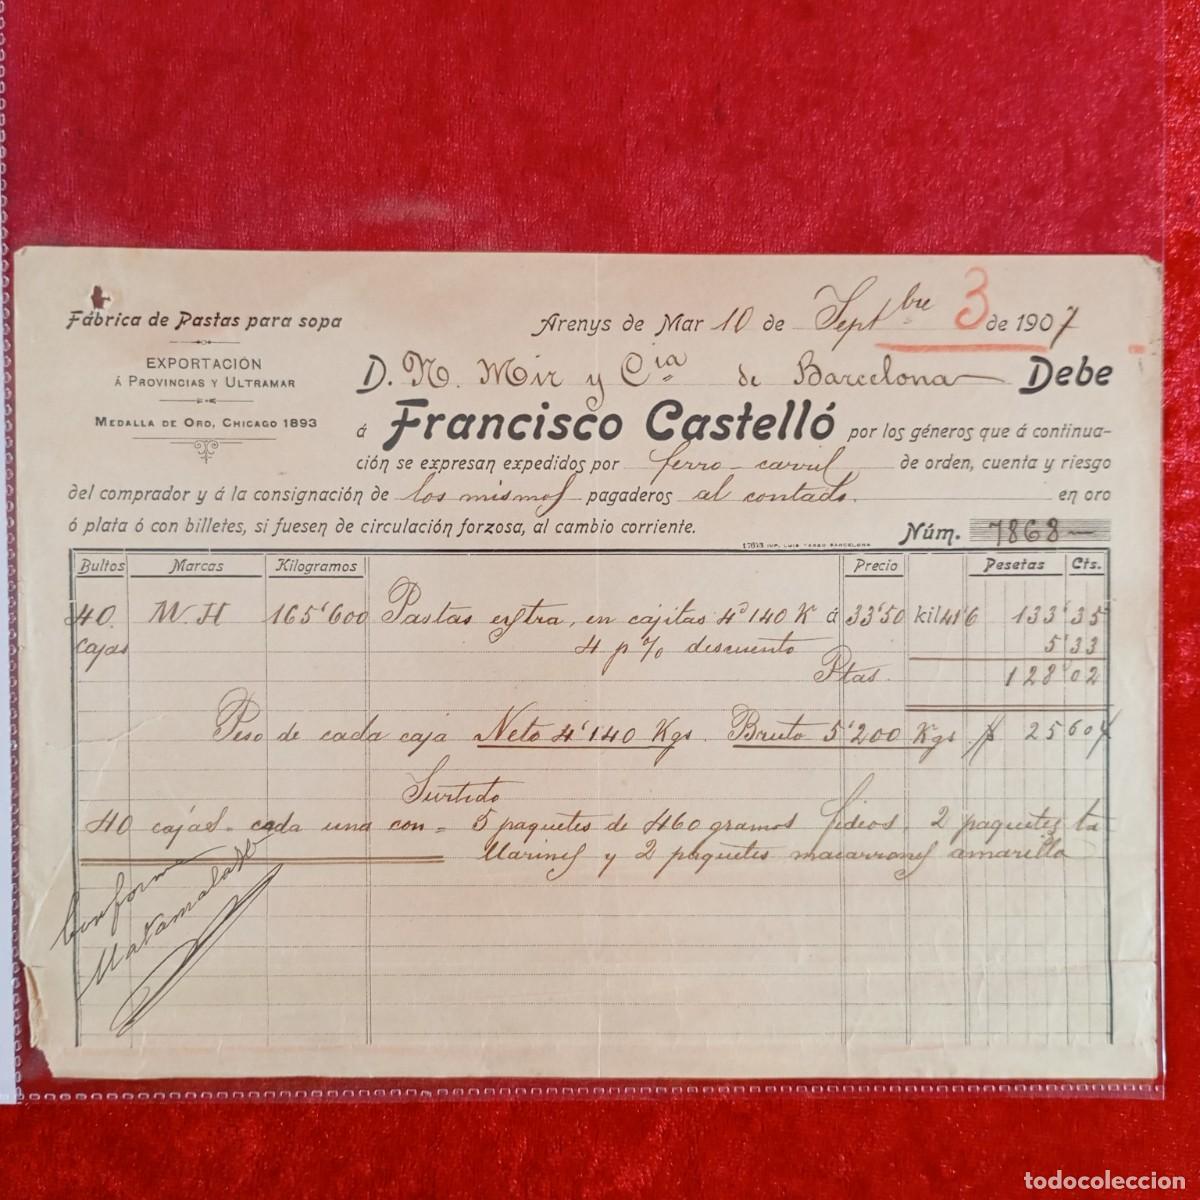 Fábrica de Pastas para sopa
EXPORTACIÓN
Á PROVINCIAS Y ULTRAMAR
MEDALLA DE ORO, CHICAGO 1893
3
Arenys de Mar 10 de Septbre de 1907
D. N. Mir y Cia de Barcelona Debe
á Francisco Castelló por los géneros que á continua-
ción se expresan expedidos por ferro-carril de orden, cuenta y riesgo
del comprador y á la consignación de los mismos pagaderos al contado. en oro
ó plata ó con billetes, si fuesen de circulación forzosa, al cambio corriente. Núm. 7868
IMP. LUIS TASSO BARCELONA
Bultos Marcas Kilogramos Precio Pesetas Cts.
40 M. H 165'600 Pastas extra, en cajitas 4'140 K á 33'50 kil 41'6 133'35
cajas 4 p% descuento 5'33
Ptas. 128'02
Peso de cada caja Neto 4'140 Kgs. Bruto 5'200 Kgs 2560
Surtido
40 cajas = cada una con = 5 paquetes de 460 gramos fideos, 2 paquetes ta
llarines y 2 paquetes macarrones amarillo
Conforme
Matamala
todocoleccion